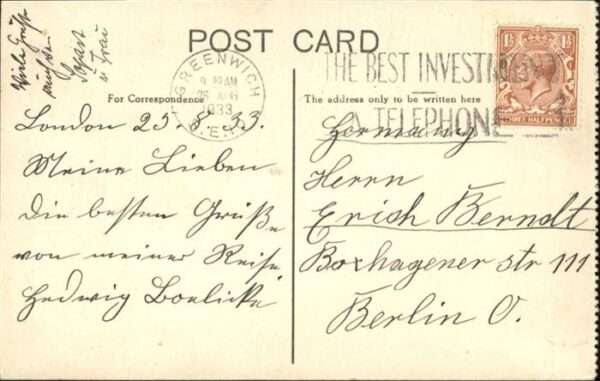 Viele Grüße
auch an
u Frau
POST CARD
GREENWICH
9 30 AM
1933
S.E.
THE BEST INVESTMENT
A TELEPHONE
1½
1½
For Correspondence
The address only to be written here
London 25.8.33.
Meine Lieben
Die besten Grüße
von meiner Reise
Hedwig Boelicke
Germany
Herrn
Erich Berndt
Boxhagener str 111
Berlin O.